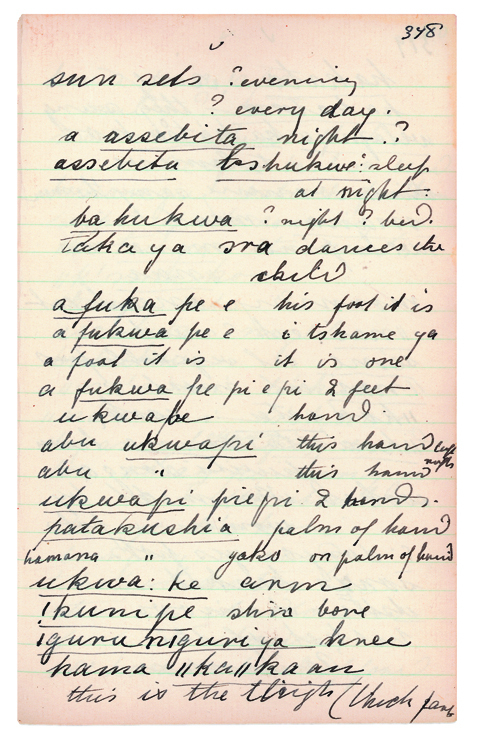 348
sun sets ? evening
? every day.
a assebita night.?
assebita tshukwe: sleep
at night.
ba kukwa ? night ? bed.
taka ya sra dances the
child
a fuka pe e his foot it is
a fukwa pe e i tshame ya
a foot it is it is one
a fukwa pe pi e pi 2 feet
ukwape hand
abu ukwapi this hand left
abu " this hand right
ukwapi piepi 2 hands.
patakushia palm of hand
hamana " yako on palm of hand
ukwa: ke arm
!kuni pe shin bone
!guru n!guri ya knee
hama ||ka||ka an
this is the thigh (thick part